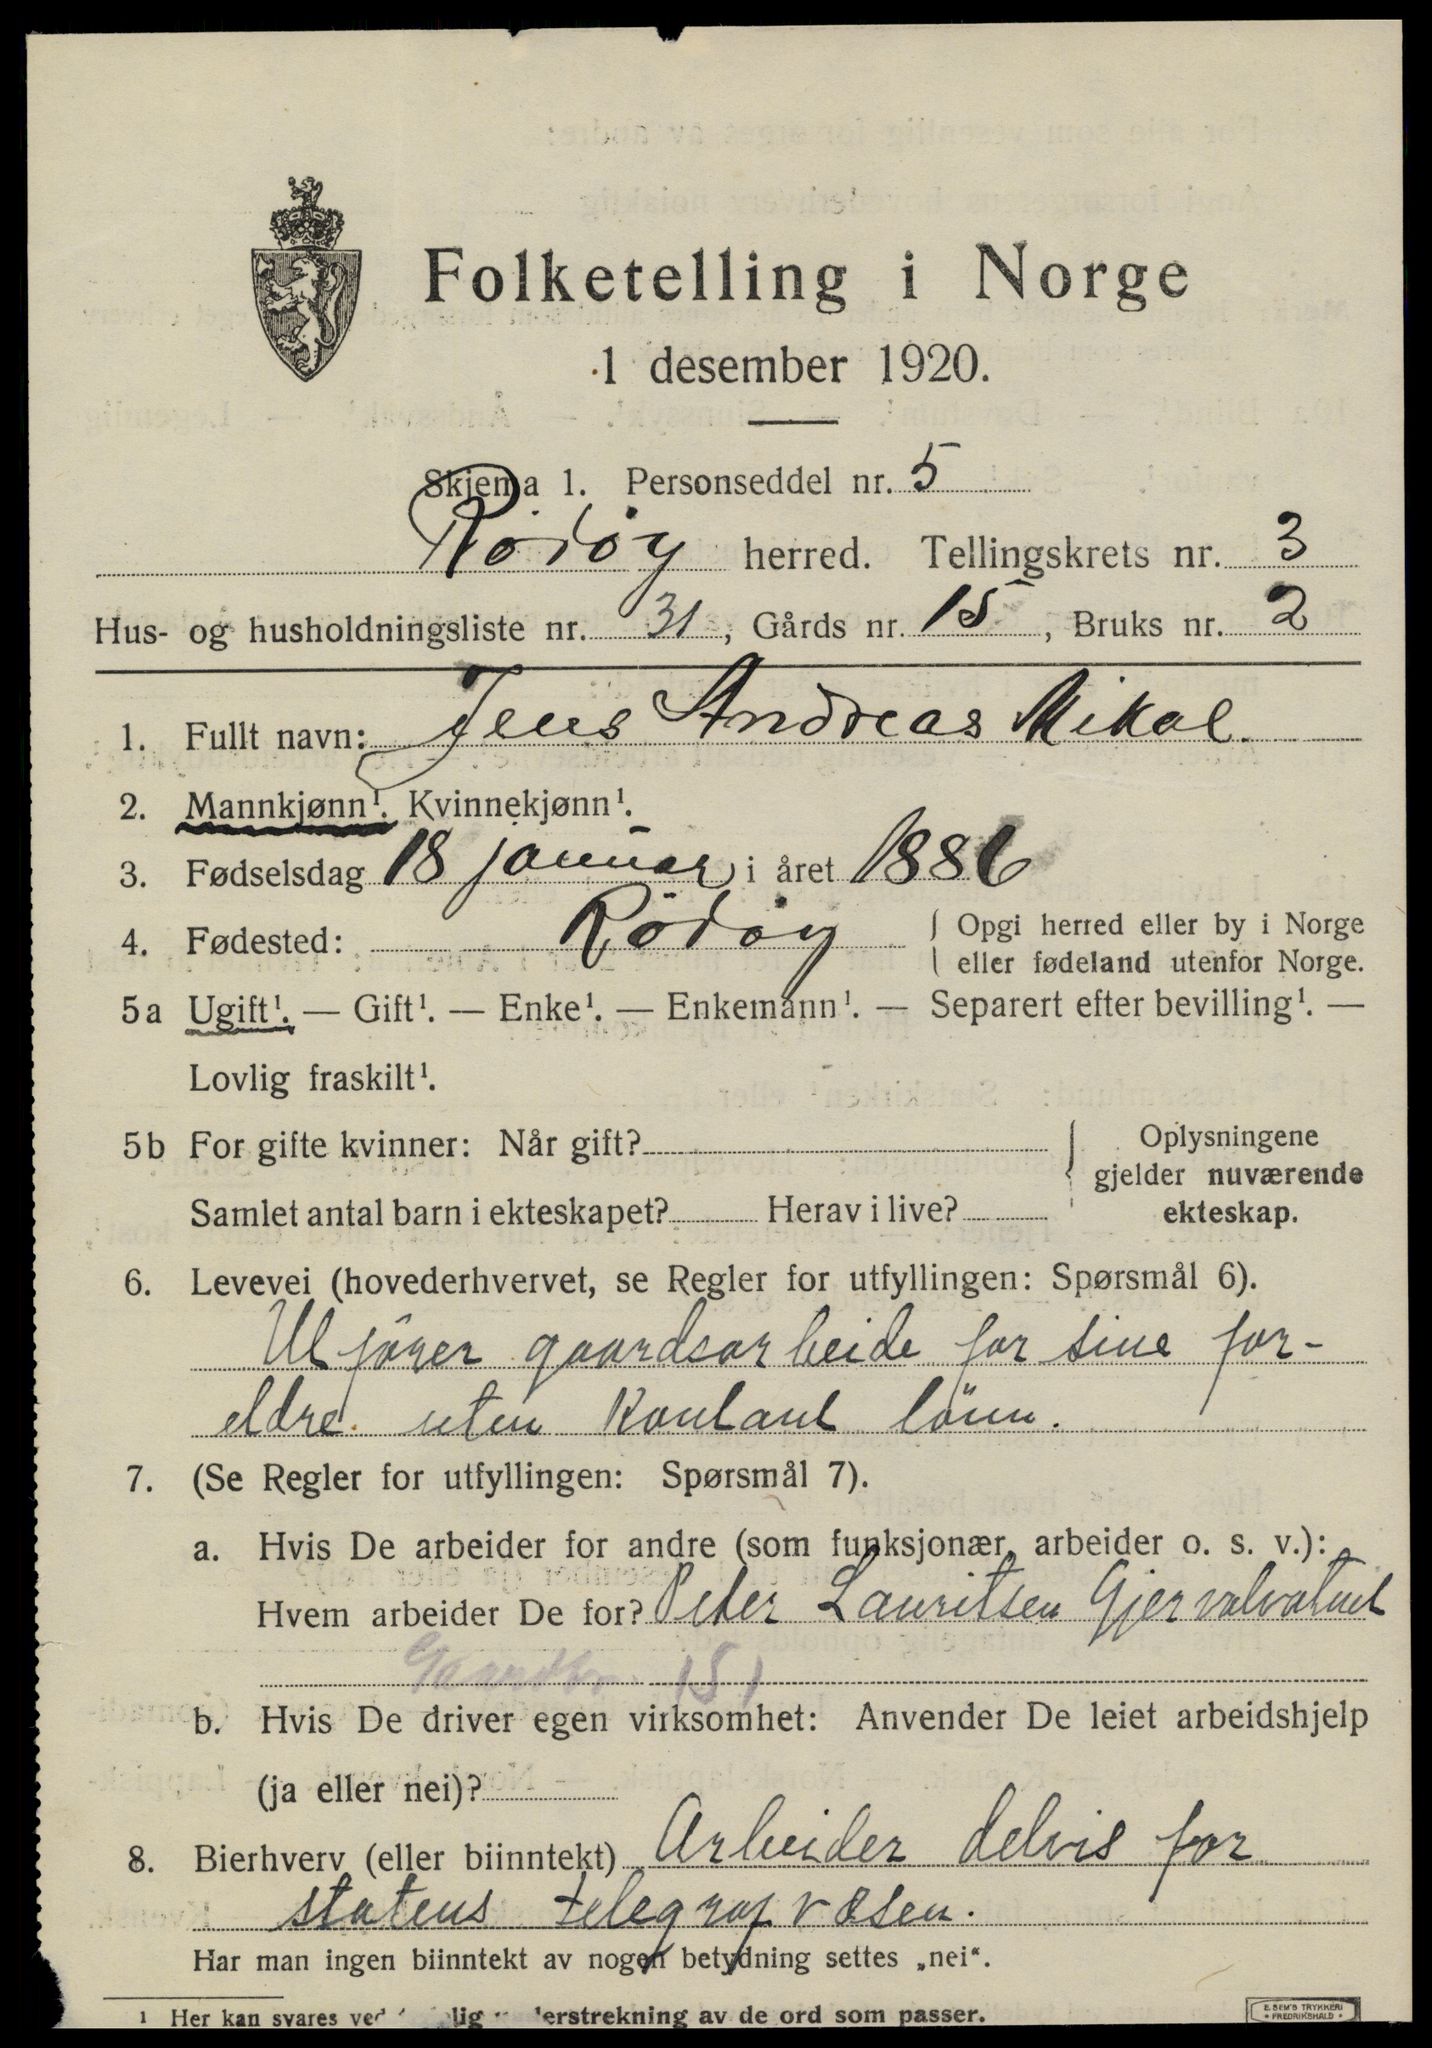 Folketelling i Norge
1 desember 1920.
Skjema 1. Personseddel nr. 5
Rödöy herred. Tellingskrets nr. 3
Hus- og husholdningsliste nr. 31, Gårds nr. 15, Bruks nr. 2
1. Fullt navn: Jens Andreas Mikal
2. Mannkjønn¹. Kvinnekjønn¹.
3. Fødselsdag 18 januar i året 1886
4. Fødested: Rödöy { Opgi herred eller by i Norge
eller fødeland utenfor Norge.
5a Ugift¹. — Gift¹. — Enke¹. — Enkemann¹. — Separert efter bevilling¹. —
Lovlig fraskilt¹.
5b For gifte kvinner: Når gift? { Oplysningene
gjelder nuværende
Samlet antal barn i ekteskapet? Herav i live? ekteskap.
6. Levevei (hovederhvervet, se Regler for utfyllingen: Spørsmål 6).
Utförer gaardsarbeide for sine for-
eldre uten kontant lönn.
7. (Se Regler for utfyllingen: Spørsmål 7).
a. Hvis De arbeider for andre (som funksjonær, arbeider o. s. v.):
Hvem arbeider De for? Peter Lauritsen Gjervalvatnet
Gaardbr. 151
b. Hvis De driver egen virksomhet: Anvender De leiet arbeidshjelp
(ja eller nei)?
8. Bierhverv (eller biinntekt) Arbeider delvis for
statens telegrafvæsen.
Har man ingen biinntekt av nogen betydning settes „nei“.
1 Her kan svares ved understrekning av de ord som passer.
E. SEM'S TRYKKERI
FREDRIKSHALD